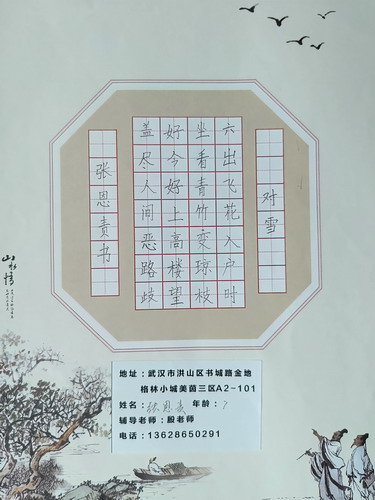 对雪
六出飞花入户时
坐看青竹变琼枝
好今好上高楼望
盖尽人间恶路歧
张恩责书
山水情
地址：武汉市洪山区书城路金地
格林小城美茵三区A2-101
姓名：张恩责 年龄：7
辅导老师：殷老师
电话：13628650291